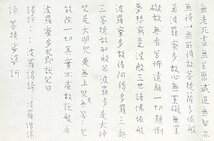 無老死盡無苦集滅道無智亦
無得以無所得故菩提薩埵依般
若波羅蜜多故心無罣礙無罣
礙故無有恐怖遠離一切顛倒
夢想究竟涅槃三世諸佛依般
若波羅蜜多故得阿耨多羅三藐
三菩提故知般若波羅蜜多是大神
咒是大明咒是無上咒是無等等
咒能除一切苦真實不虛故說般若
波羅蜜多咒即說咒曰
揭諦揭諦 波羅揭諦 波羅僧揭
諦 菩提薩婆訶